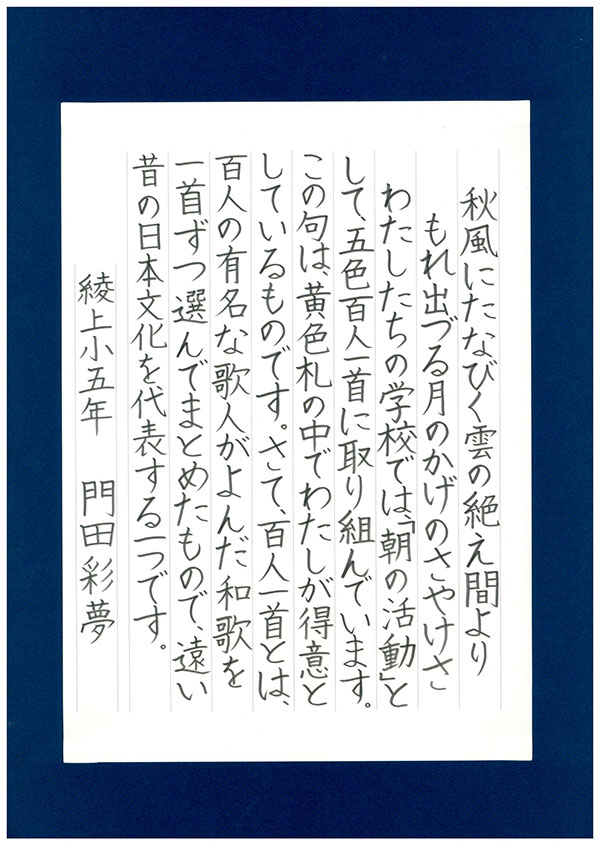 秋風にたなびく雲の絶え間より
もれ出づる月のかげのさやけさ
わたしたちの学校では、「朝の活動」と
して、五色百人一首に取り組んでいます。
この句は、黄色札の中でわたしが得意と
しているものです。さて、百人一首とは、
百人の有名な歌人がよんだ和歌を
一首ずつ選んでまとめたもので、遠い
昔の日本文化を代表する一つです。
綾上小五年 門田彩夢